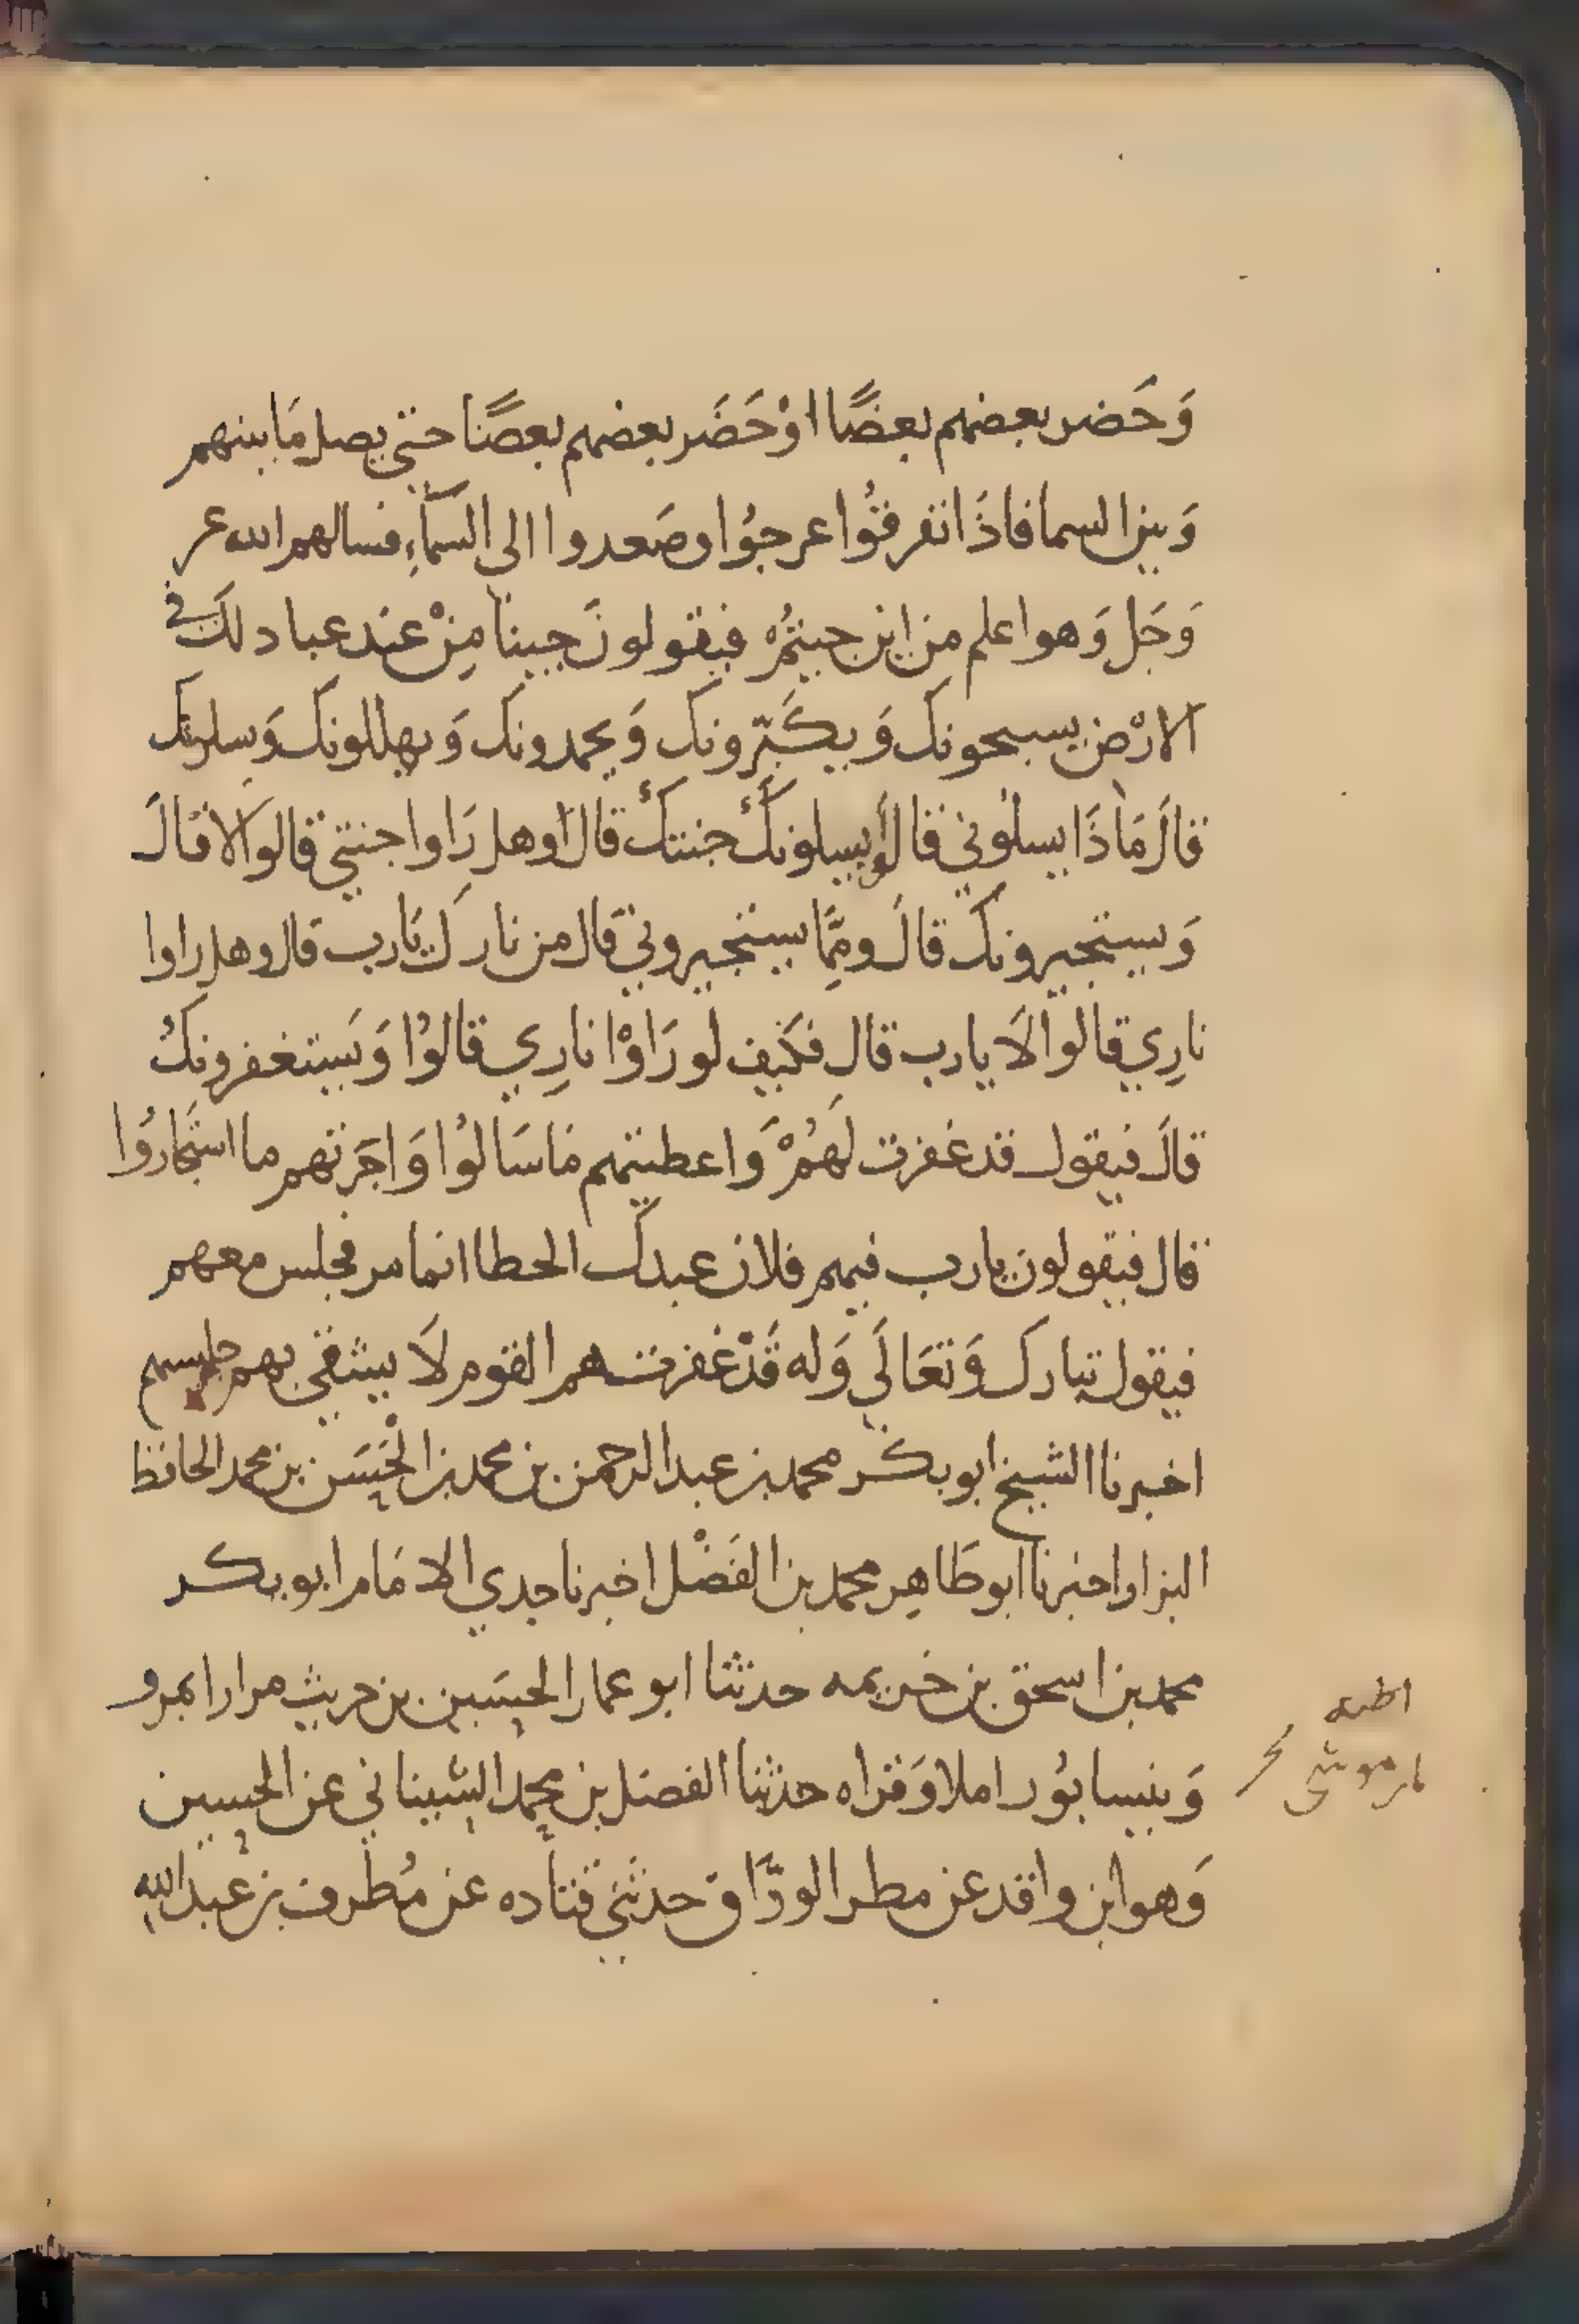 وَحَضر بعضهم بعضًا اوْ حَضَر بعضهم بعضًا حتى يصل مَا بينهم
وَبين السما فاذَا تفرقُوا عرجُوا وصَعدوا الى السمَآءِ فسالهم الله عز
وَجَل وَهو اعلم من اين جيتمُ فيقولونَ جينا مِنْ عند عباد لكَ في
الارْض يسبحونك وَيكَبّرونك وَيحمدونك وَيهللونك وَيسلونك
قالَ مَاذَا يسلوني قالوا يسلونكَ جنتك قال وهل رَاوا جنتي قالوا لا قالَ
وَيستجيرونكَ قالَ ومِمَّا يستجيروني قال من ناركَ يَارب قال وهل راوا
نارِي قالوا لَا يارب قال فكَيف لو رَاوْا نارِي قالوُا وَيَستغفرونكُ
قالَ فيقول قد غفرت لَهُمْ وَاعطيتهم مَا سَالوُا وَاجَرتهم ما استجاروُا
قال فيقولون يارب فيهم فلان عبدكَ الخطا انما مر فجلس معهم
فيقول تبارك وَتعَالَي وَله قَدْ غفرت هم القوم لَا يشقي بهم جليسهم
اخبرنا الشيخ ابو بكر محمد بن عبد الرحمن بن محمد بن الْحَسَن بن محمد الحافظ
البزار اخبرنا ابو طَاهِر محمد بن الفَضْل اخبرنا جدي الامَام ابو بكر
محمد بن اسحق بن خزيمه حدثنا ابو عمار الحسَين بن حريث مرارا بمرو
وَبنيسابوُر املا وَقراه حدثنا الفضل بن محمد الشيباني عن الحسين
وَهو ابن واقد عن مطر الورَّاق حدثني قتاده عن مُطرف بن عبد الله
اظنه